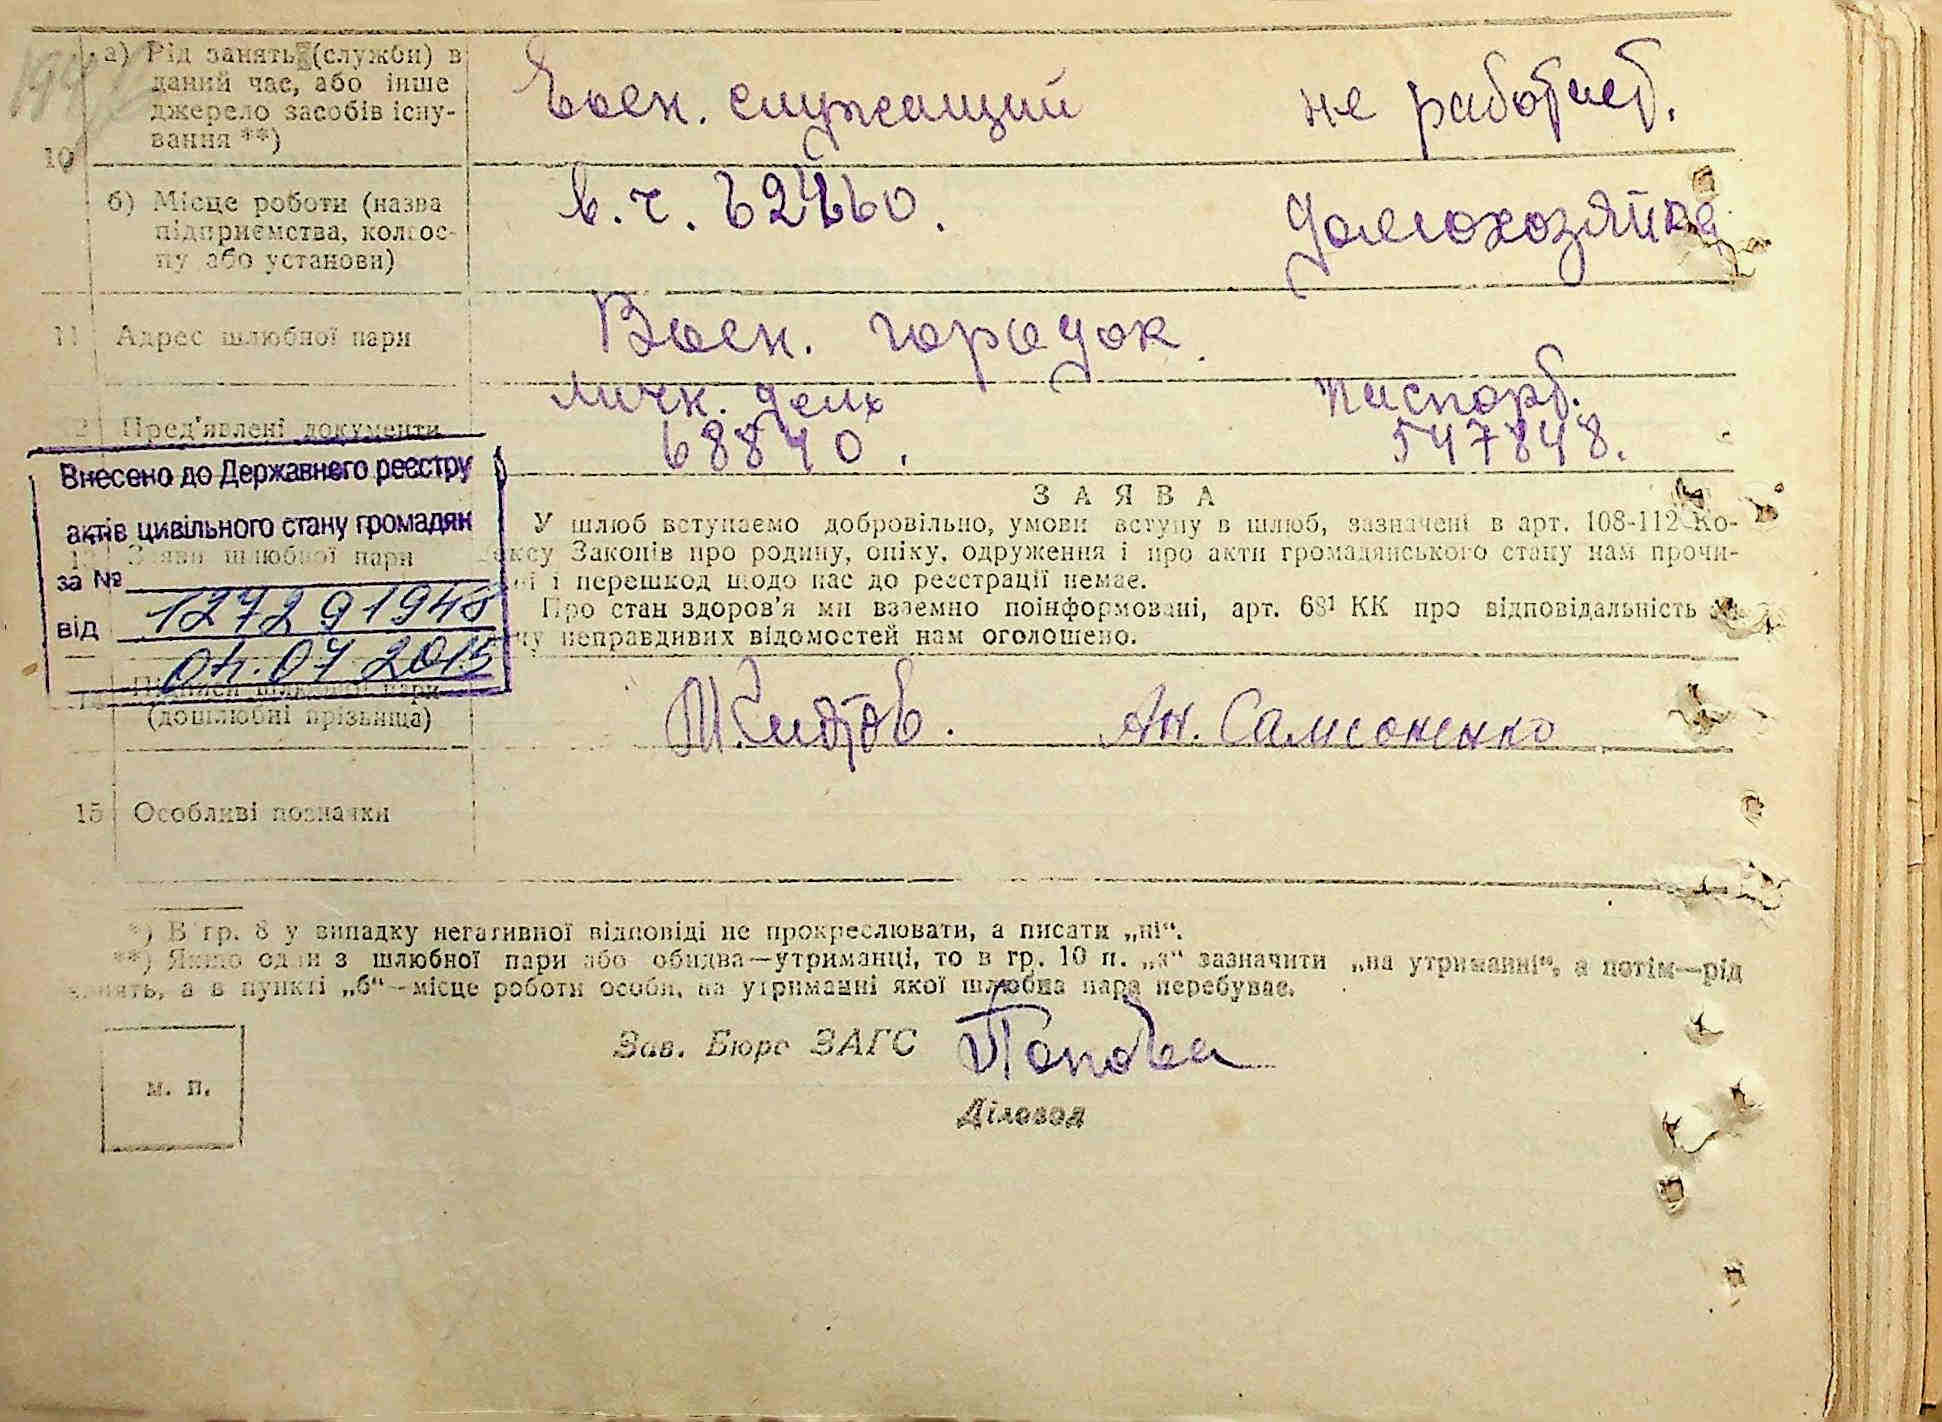 а) Рід занять (служби) в
даний час, або інше
джерело засобів існу-
вання **)
10
Воен. служащий
не работает.
б) Місце роботи (назва
підприємства, колгос-
пу або установи)
в. ч.
домохозяйка
11 Адрес шлюбної пари
Воен. городок
Пред'явлені документи
личн. дело
68840.
Паспорт.
547848.
Внесено до Державного реєстру
актів цивільного стану громадян
за №
127291948
від
04.07 2015
Заяви шлюбної пари
ЗАЯВА
У шлюб вступаємо добровільно, умови вступу в шлюб, зазначені в арт. 108-112 Ко-
ексу Законів про родину, опіку, одруження і про акти громадянського стану нам прочи-
і перешкод щодо нас до реєстрації немає.
Про стан здоров'я ми взаємно поінформовані, арт. 68¹ КК про відповідальність
неправдивих відомостей нам оголошено.
Підписи шлюбної пари
(дошлюбні прізвища)
Ан. Самсоненко
15 Особливі позначки
*) В гр. 8 у випадку негативної відповіді не прокреслювати, а писати „ні“.
**) Якщо один з шлюбної пари або обидва—утриманці, то в гр. 10 п. „а“ зазначити „на утриманні“, а потім—рід
занять, а в пункті „б“—місце роботи особи, на утриманні якої шлюбна пара перебуває.
Зав. Бюро ЗАГС Попова
м. п.
Діловод